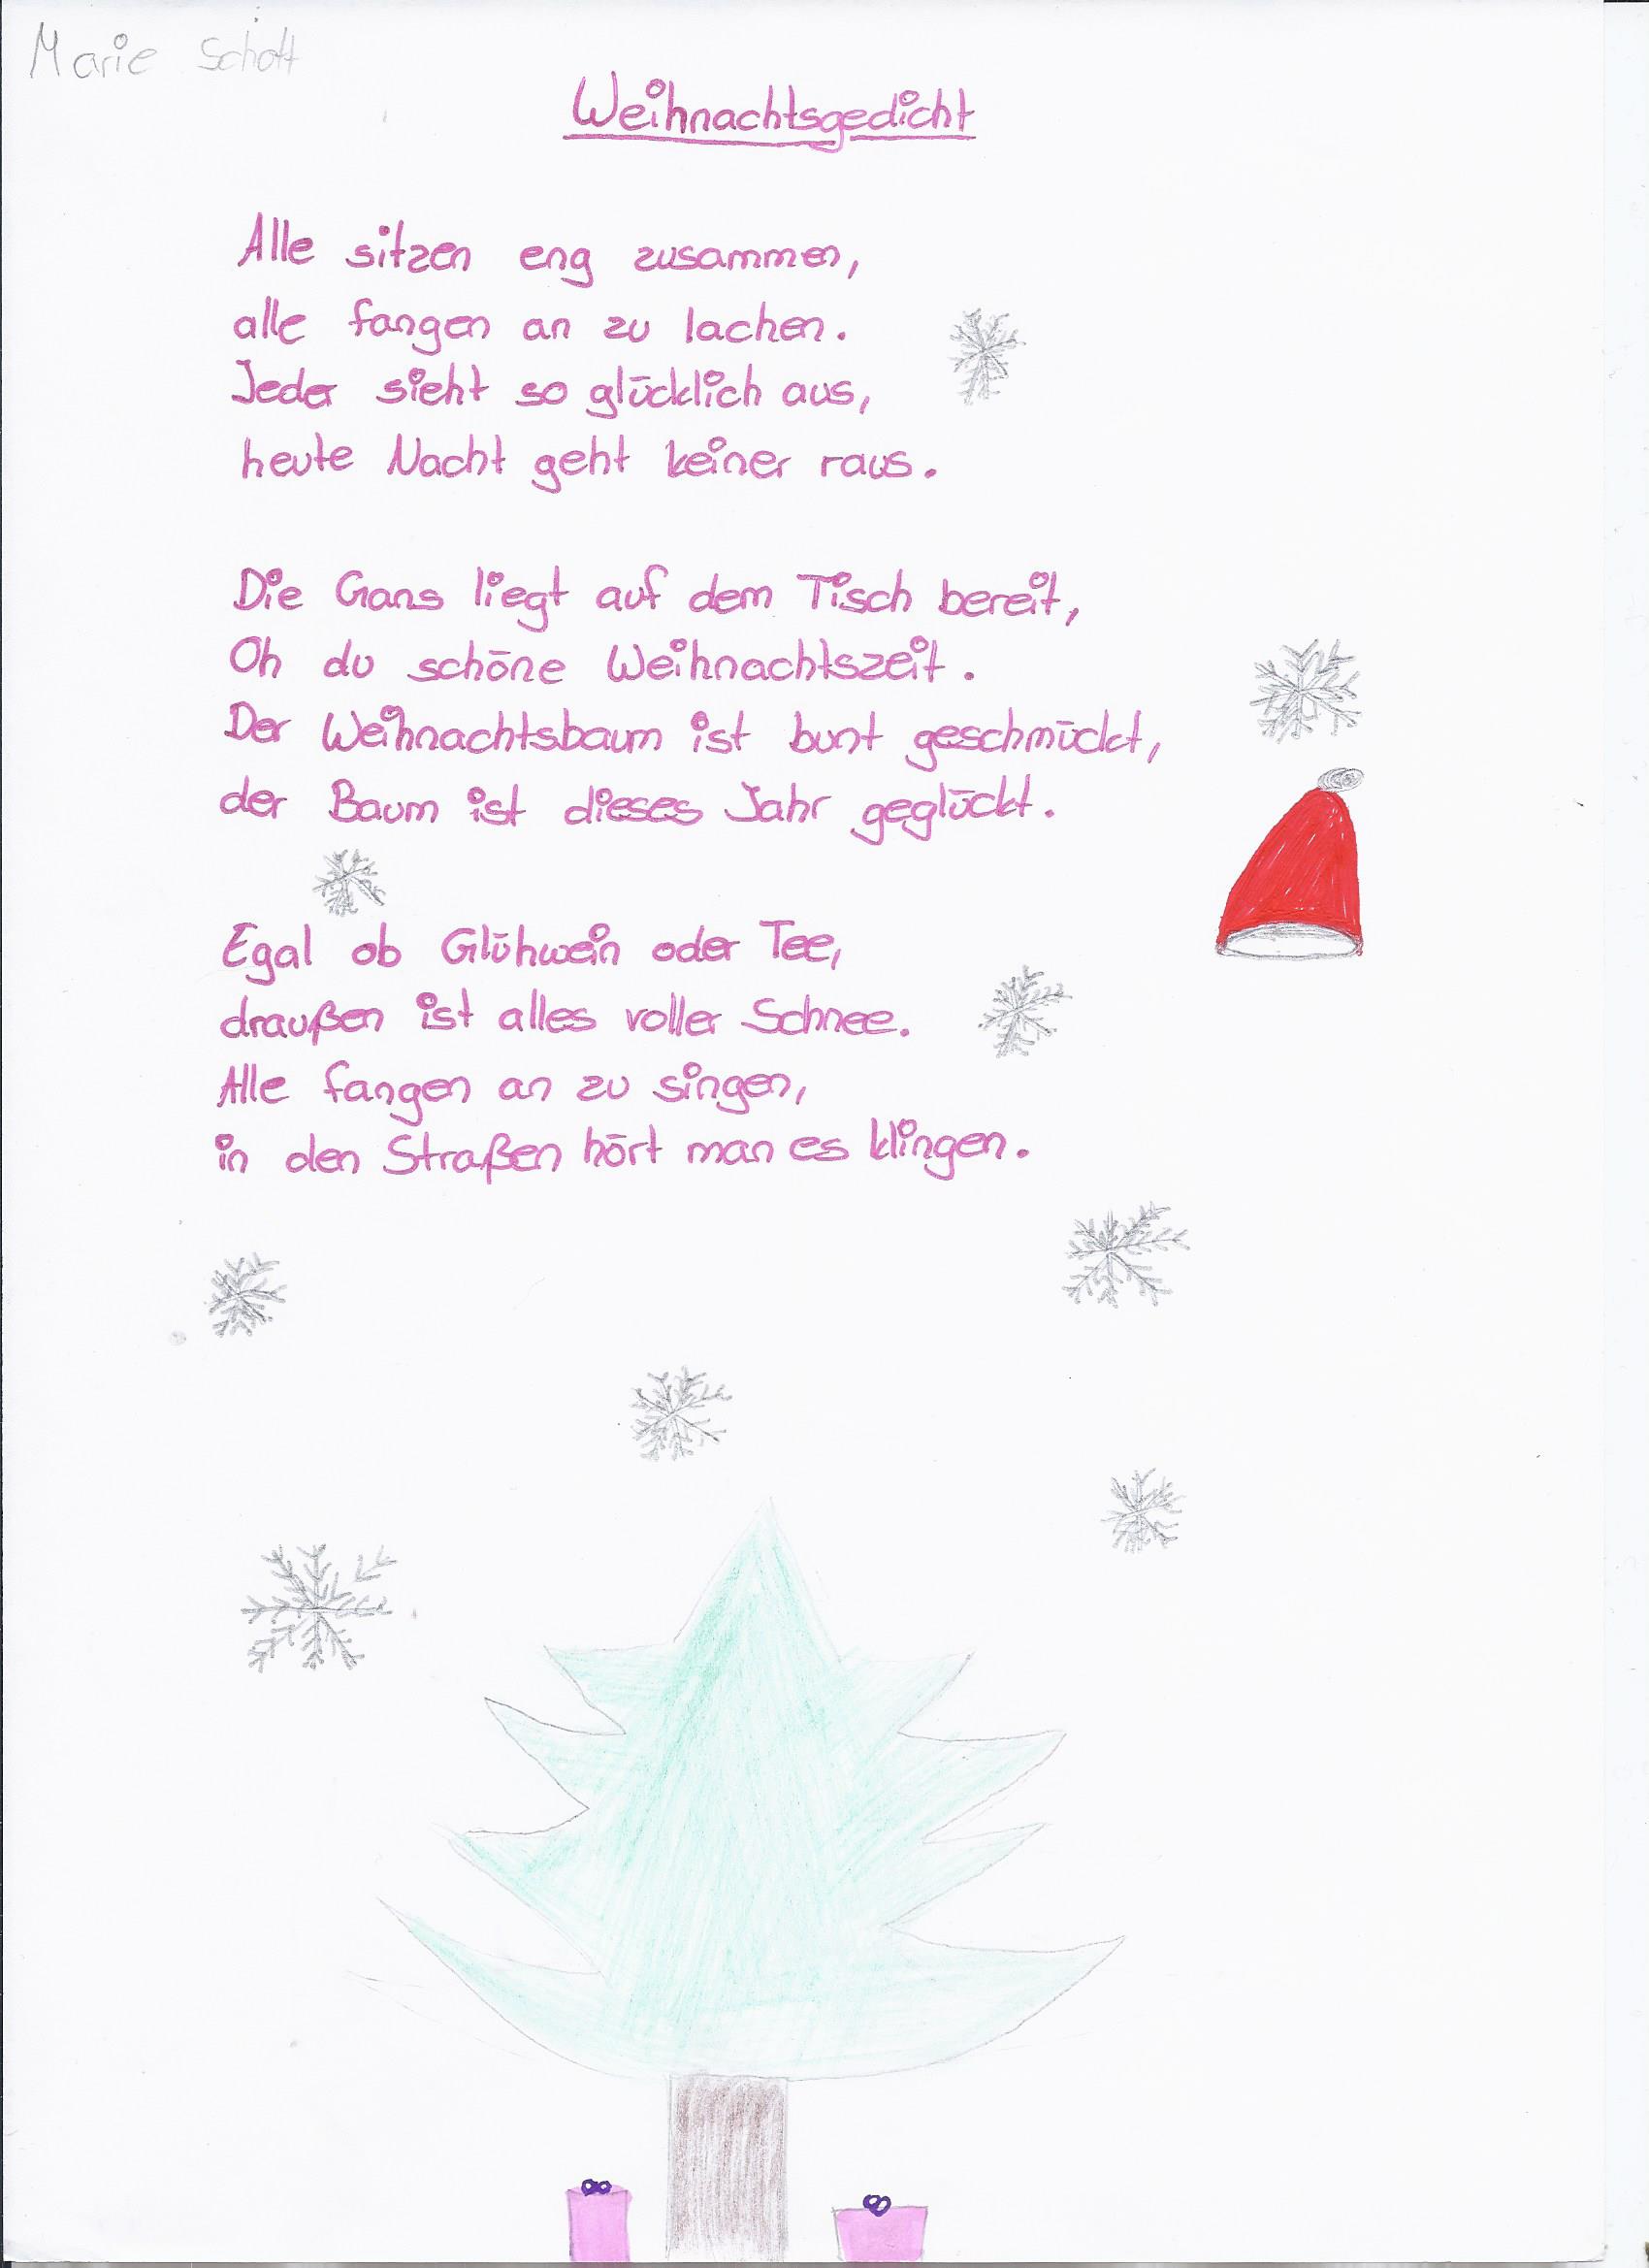 Marie Schott
Weihnachtsgedicht
Alle sitzen eng zusammen,
alle fangen an zu lachen.
Jeder sieht so glücklich aus,
heute Nacht geht keiner raus.
Die Gans liegt auf dem Tisch bereit,
Oh du schöne Weihnachtszeit.
Der Weihnachtsbaum ist bunt geschmückt,
der Baum ist dieses Jahr geglückt.
Egal ob Glühwein oder Tee,
draußen ist alles voller Schnee.
Alle fangen an zu singen,
in den Straßen hört man es klingen.